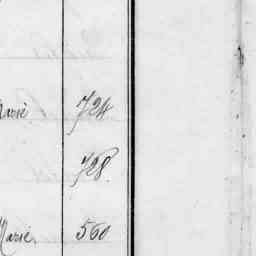 Marié 724
728.
Marié, 560